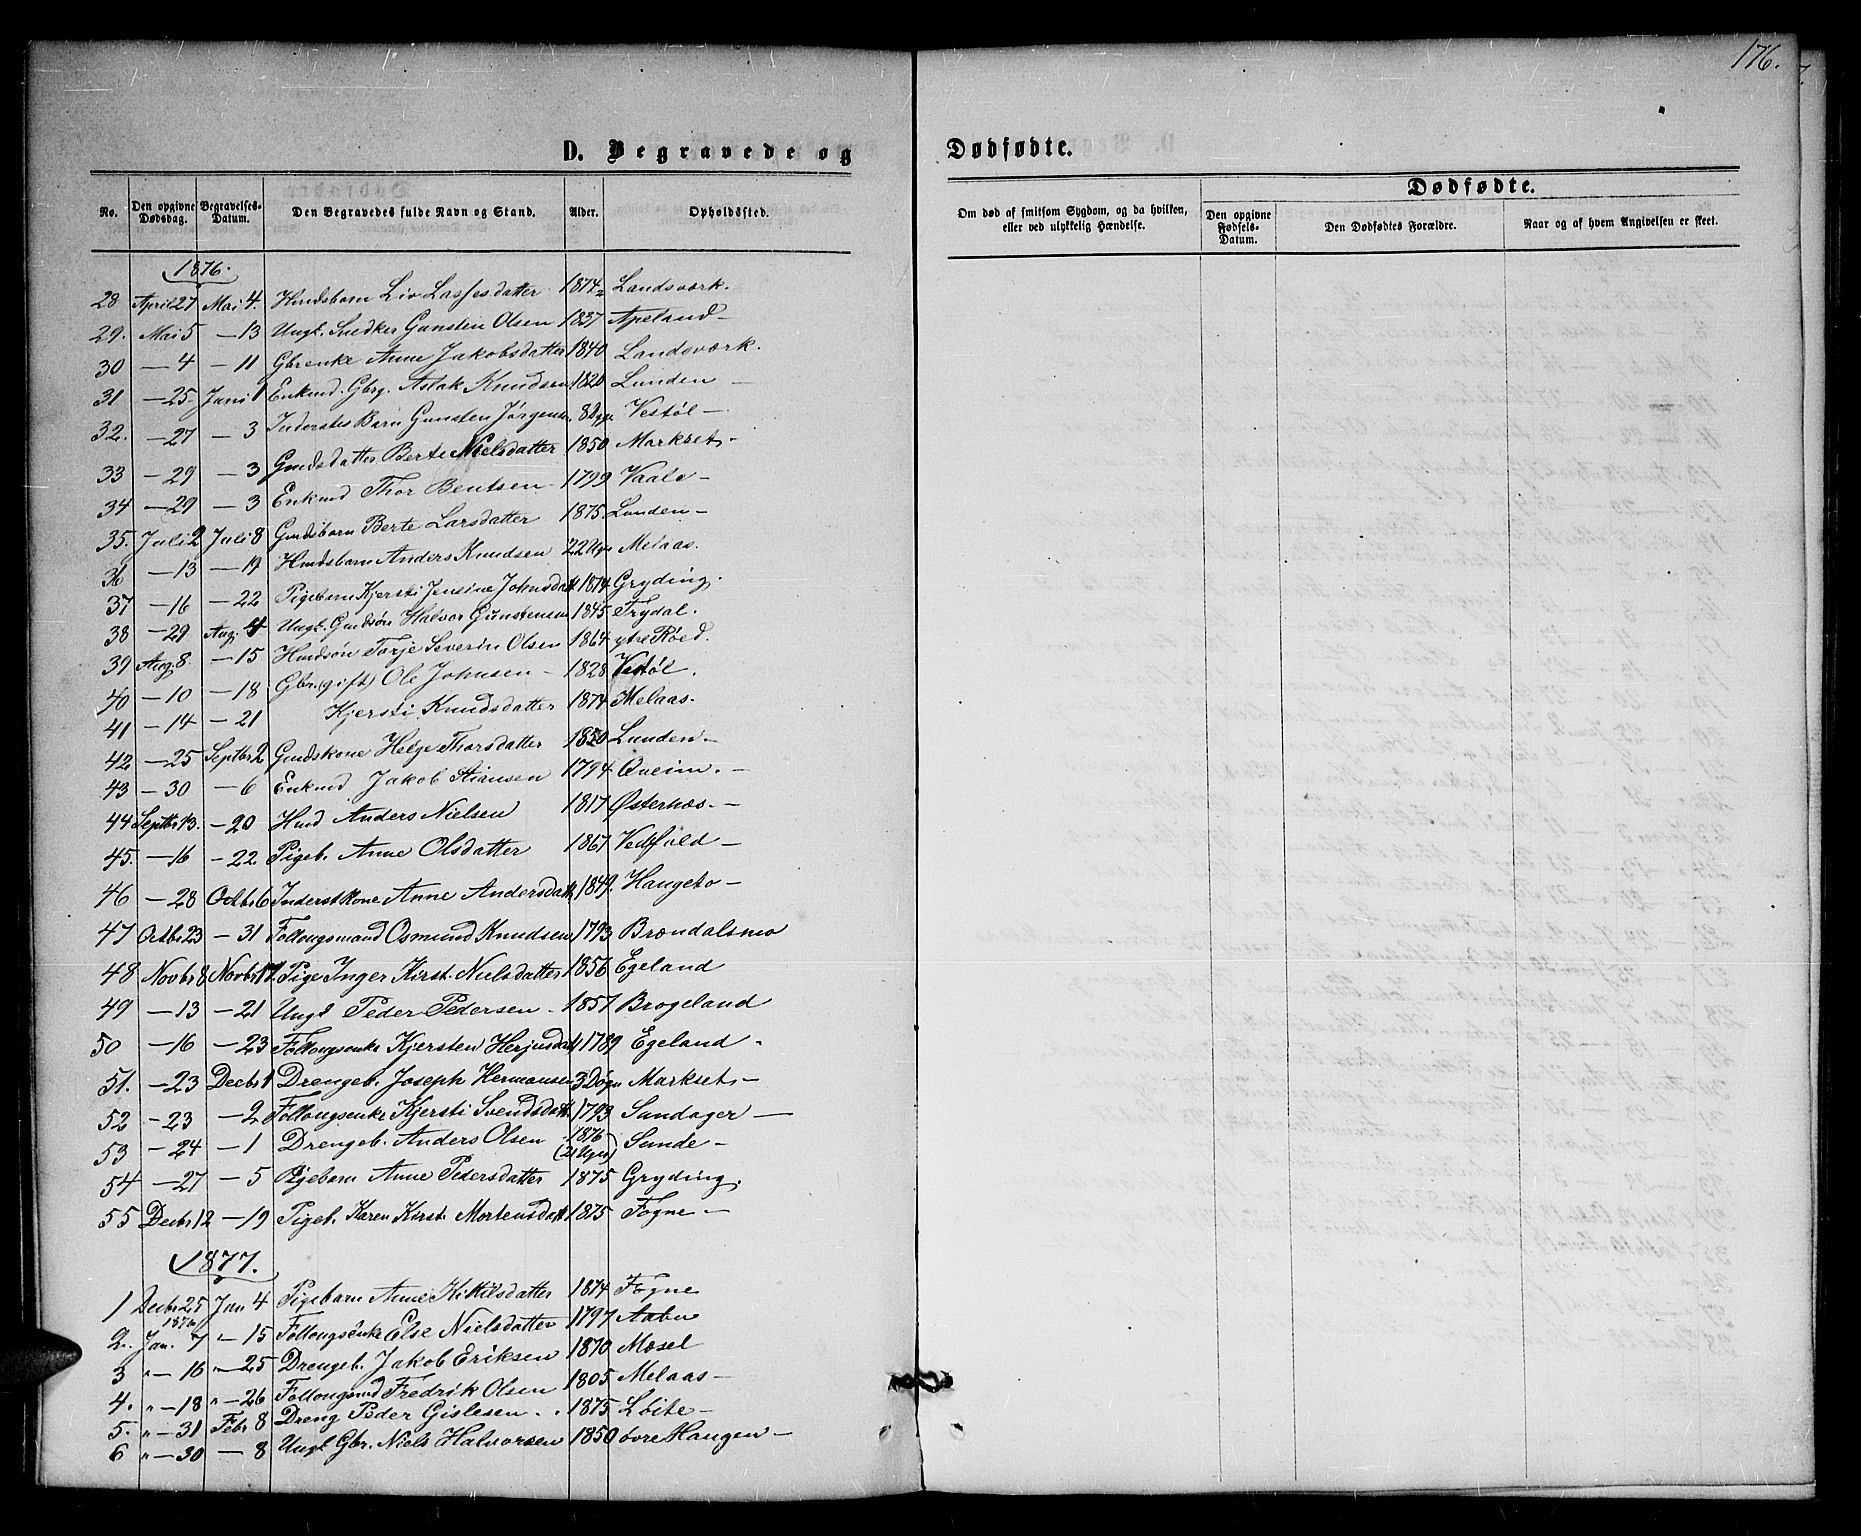 176.
D. Begravede og
Dødfødte.
No. Den opgivne Dødsdag. Begravelses-Datum. Den Begravedes fulde Navn og Stand. Alder. Opholdssted.
Om død af smitsom Sygdom, og da hvilken, eller ved ulykkelig Hændelse.
Dødfødte.
Den opgivne Fødsels-Datum. Den Dødfødtes Forældre. Naar og af hvem Angivelsen er skeet.
1876.
28 April 27 Mai 4. Husdsbarn Liv Lassesdatter 1874 Landsværk.
29. Mai 5 — 13 Ungk. Snedker Gunsten Olsen 1837 Apeland —
30 — 4 — 11 Gbrenke Anne Jakobsdatter 1840 Landsværk.
31 — 25. Juni 1 Enkmd. Gbrg. Aslak Knudsen 1820 Lunden —
32. — 27 — 3 Inderstes Barn Gunsten Jørgensen 8 Uger Vestøl —
33 — 29 — 3 Gmdsdatter Berte Nielsdatter 1850 Markset —
34 — 29 — 3 Enkmd Thor Bentsen — 1799 Vaale —
35. Juli 2 Juli 8 Gmdsbarn Berte Larsdatter 1875 Lunden —
36 — 13 — 19 Husdsbarn Anders Knudsen 22 Uger Melaas.
37 — 16 — 22 Pigebarn Kjersti Jensine Johnsdatt 1874 Gryding.
38 — 29 Aug. 4 Ungk. Gmdsøn Halvor Gunstensen 1845 Trydal.
39 Aug. 8. — 15 Husdsøn Torje Severin Olsen 1864 ytre Røed.
40 — 10 — 18 Gbr. (gift) Ole Johnsen — 1828 Vestøl.
41 — 14 — 21 Kjersti Knudsdatter 1874 Melaas.
42 — 25 Septbr 2 Gmdskone Helge Thorsdatter 1850 Lunden —
43 — 30 — 6 Enkmd Jakob Stiansen 1794 Qveim. —
44 Septbr 13. — 20 Husd Anders Nielsen 1817 Østernæs. —
45. — 16 — 22 Pigeb. Anne Olsdatter 1867 Vedfald —
46 — 28 Octbr 6 Inderstkone Anne Andersdatt 1849. Haugeto —
47 Octbr 23 — 31 Føllougsmand Osmund Knudsen 1793 Brændalsmo
48 Novbr 8 Novbr 17. Pige Inger Kirst. Nielsdatter 1856 Egeland
49 — 13 — 21 Ungk Peder Pedersen. 1857 Brogeland
50 — 16 — 23 Føllougsenke Kjersten Herjusdatt 1789 Egeland —
51. — 23 Decbr 1 Drengeb. Joseph Hermansen 3 Døgn Markset —
52 — 23 — 2 Føllougsenke Kjersti Svendsdatt. 1793 Sandager —
53 — 24 — 1 Drengeb. Anders Olsen 1876 (21 Uger) Sunde —
54 — 27 — 5 Pigebarn Anne Pedersdatter 1875 Gryding.
55 Decbr 12 — 19 Pigeb. Karen Kirst. Mortensdatt 1875 Fogne —
1877.
1 Decbr 25 1876 Jan 4 Pigebarn Anne Kittilsdatter 1874 Fogne
2. Jan. 7 " — 15 Føllougsenke Else Nielsdatter 1797 Aabu
3 " — 16 " — 25 Drengeb. Jakob Eriksen 1870 Mosel
4. " — 18 " — 26 Føllougsmd Fredrik Olsen 1805 Melaas —
5. " — 31 Febr 8 Dreng Peder Gislesen. 1875 Løite —
6 " — 30 — 8 Ungk Gbr. Niels Halvorsen 1850 øvre Haugen —